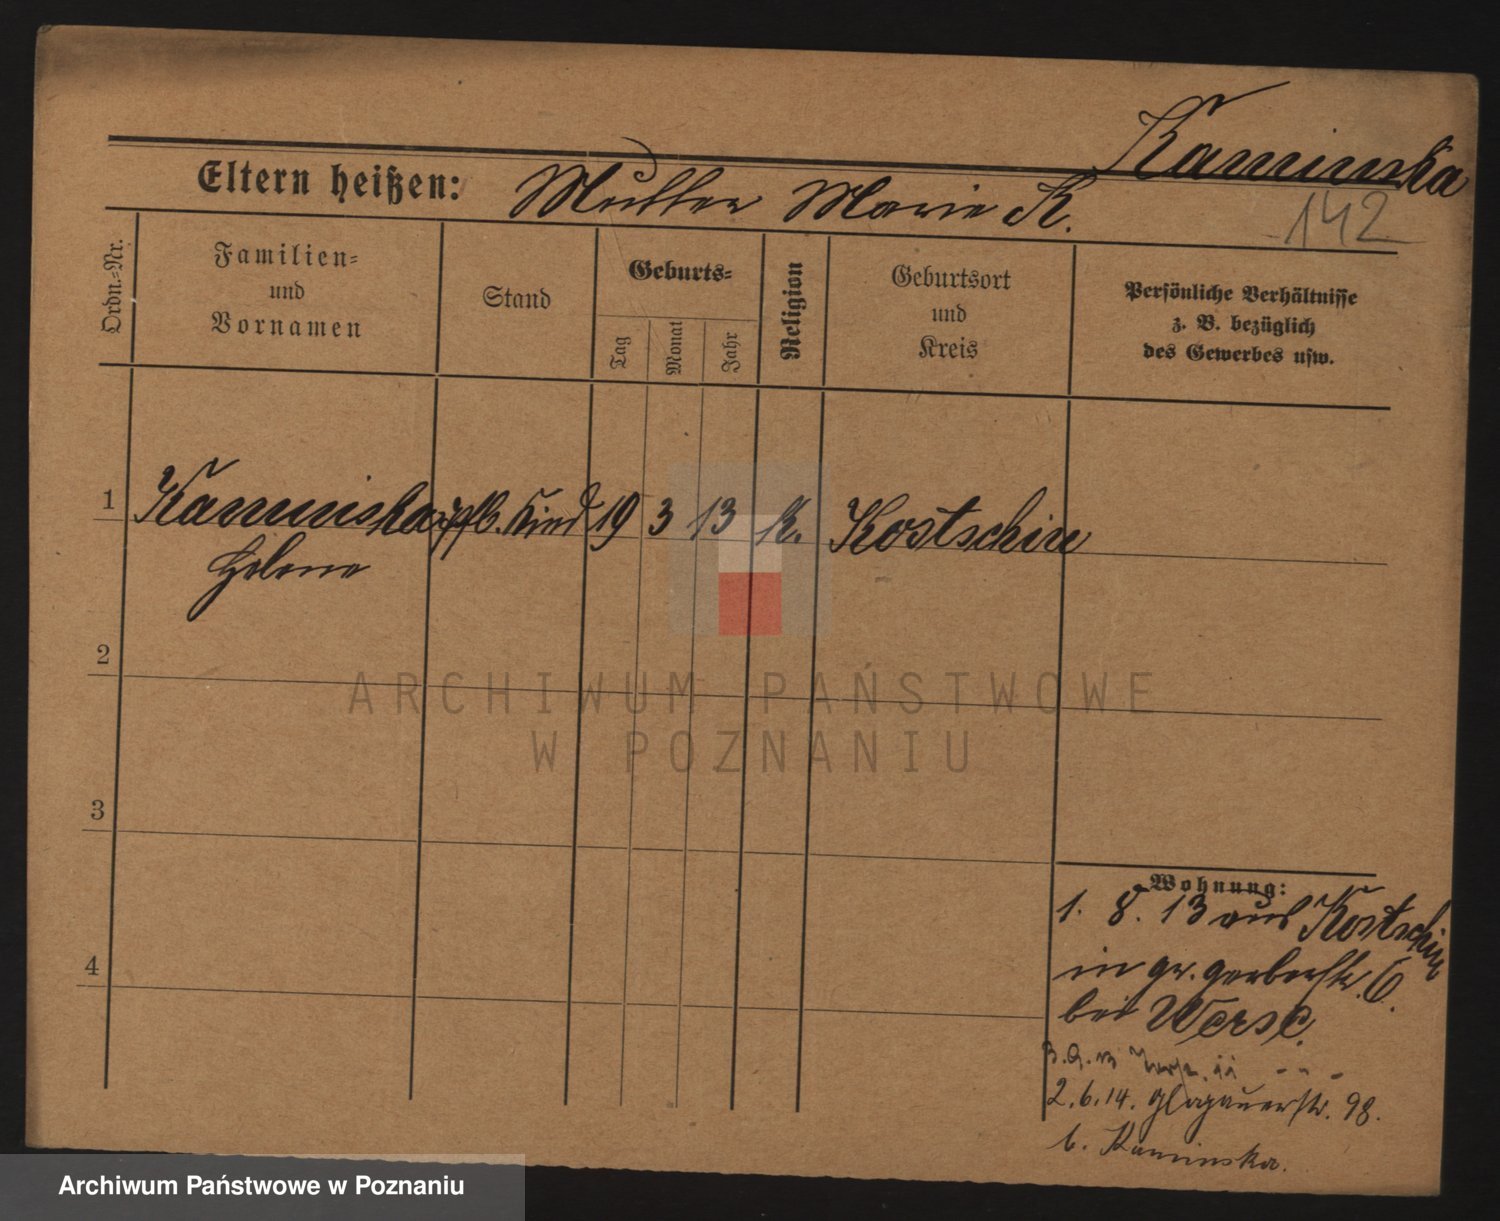 Kaminska
Eltern heißen: Mutter Marie K.
142
Ordn.=Nr.
Familien=
und
Vornamen
Stand
Geburts=
Tag
Monat
Jahr
Religion
Geburtsort
und
Kreis
Persönliche Verhältnisse
z. B. bezüglich
des Gewerbes usw.
1 Kaminska Kind 19 3 13 K. Kostschin
Helene
2
3
4
ARCHIWUM PAŃSTWOWE
W POZNANIU
Wohnung:
1. 8. 13 aus Kostschin
in gr. Gerberstr. 6.
bei Werse.
2.6.14. Glogauerstr. 98.
b. Kaminska.
Archiwum Państwowe w Poznaniu